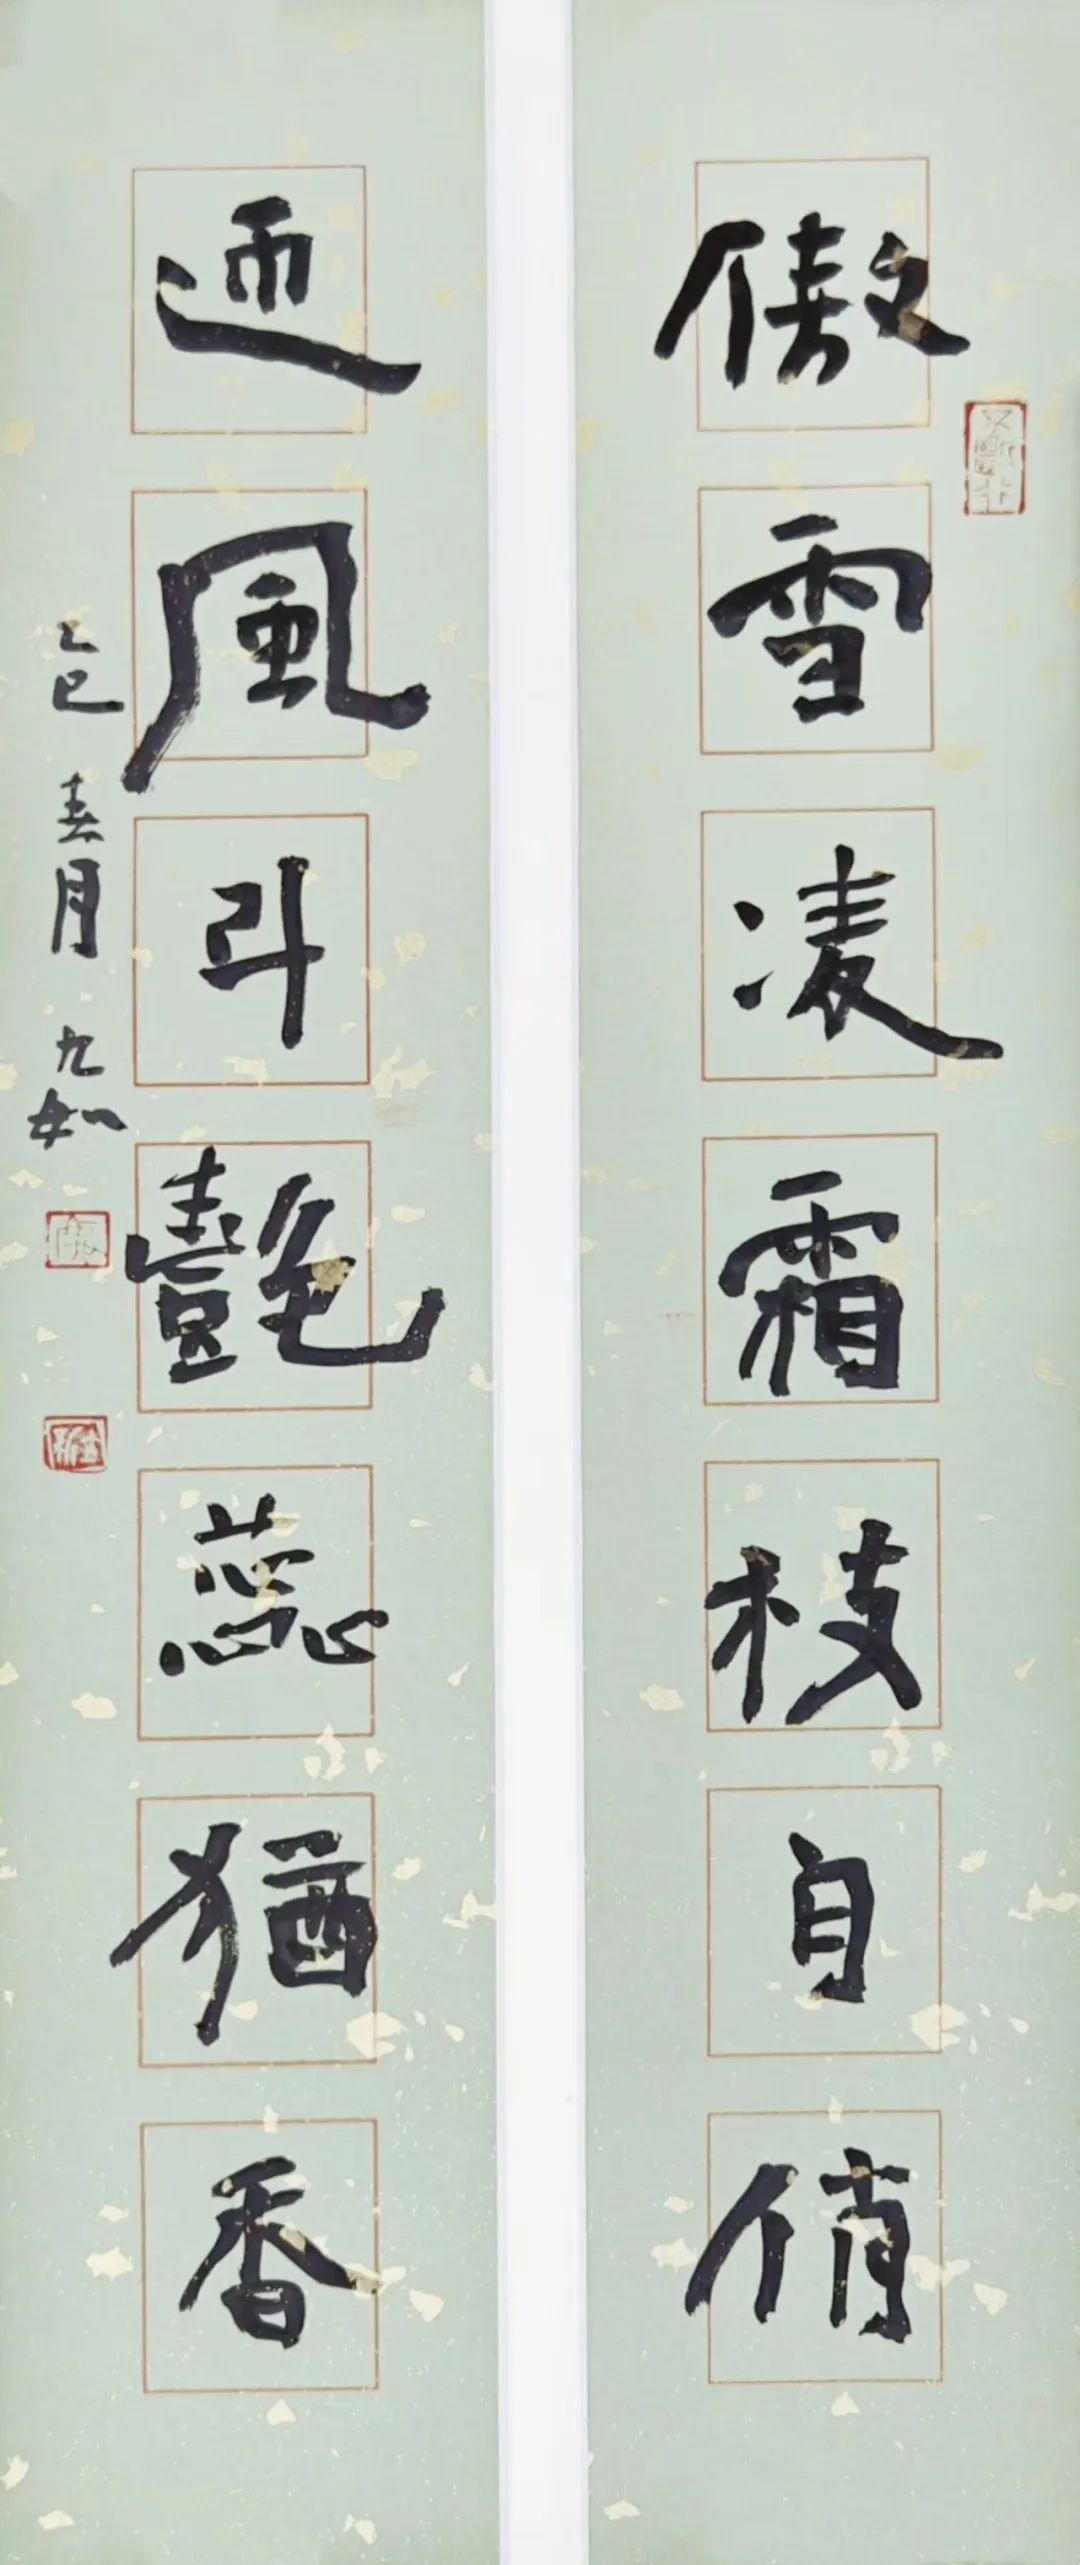 傲雪凌霜枝自俏
迎風斗艷蕊猶香
乙巳春月九如